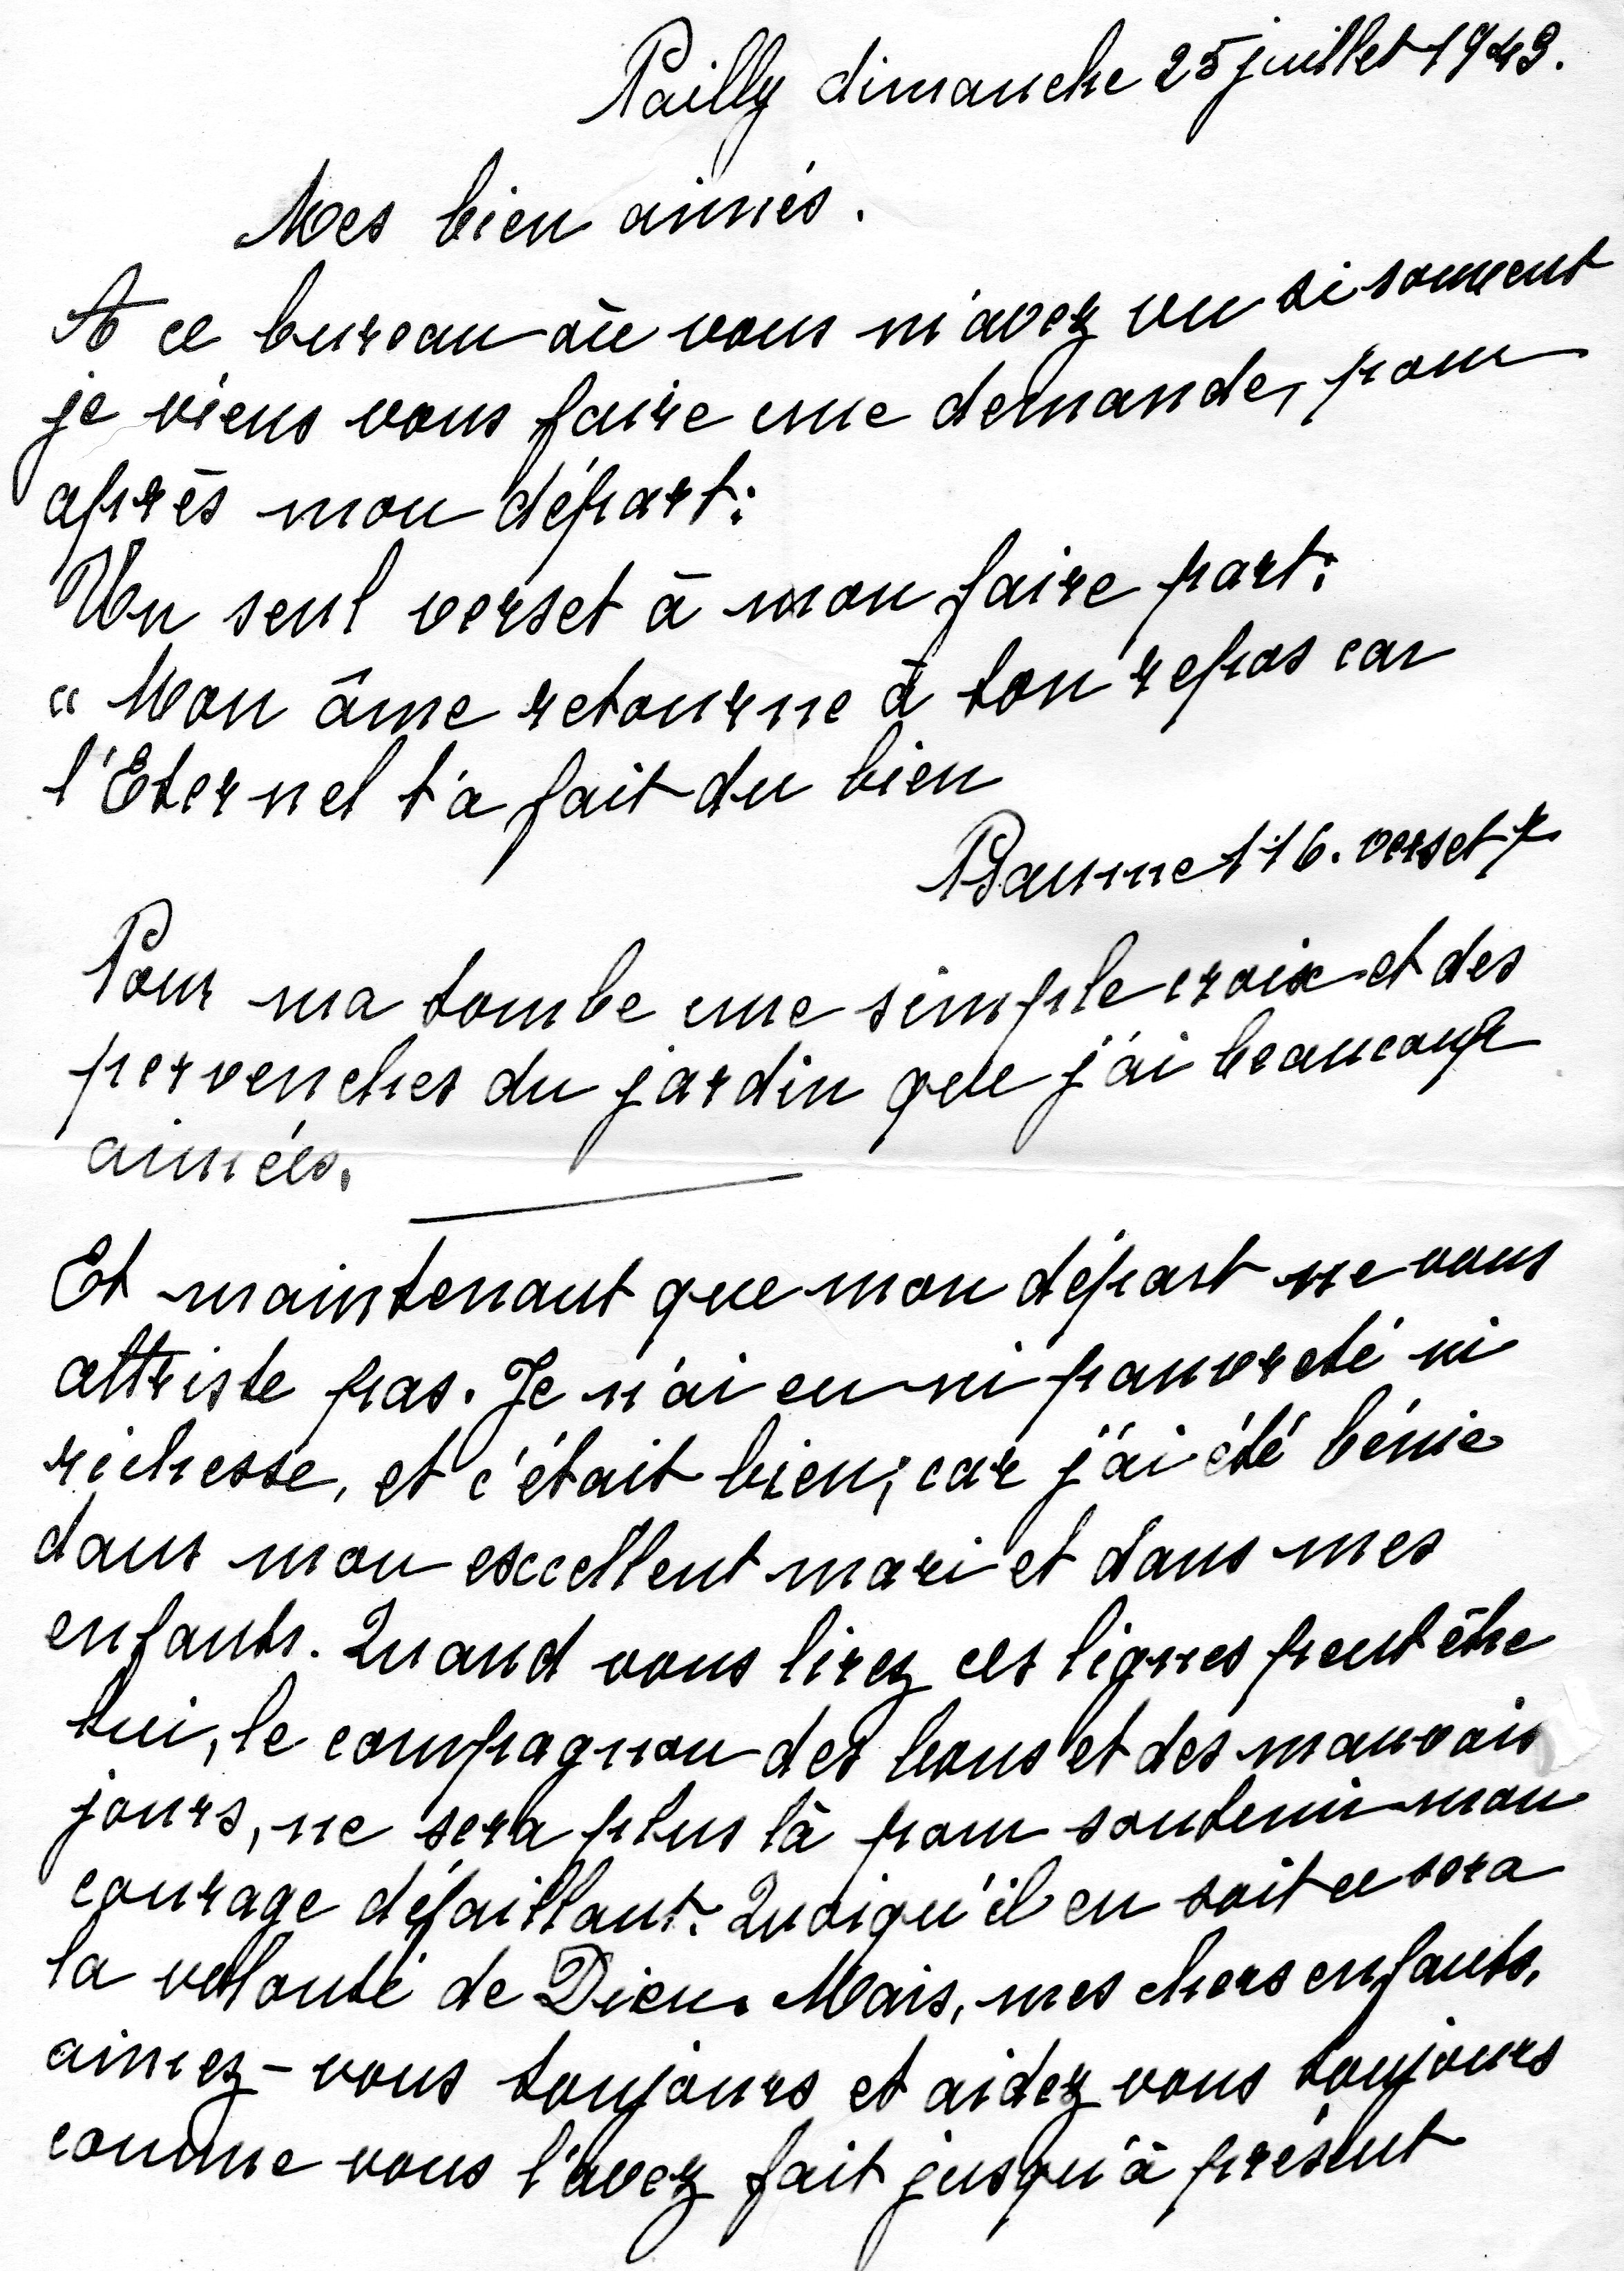 Pailly dimanche 25 juillet 1943.
Mes bien aimés.
A ce bureau où vous m'avez vu si souvent
je viens vous faire une demande, pour
après mon départ:
Un seul verset à mon faire part:
" Mon âme retourne à ton repos car
l'Eternel t'a fait du bien
Psaume 116. verset 7
Pour ma tombe une simple croix et des
pervenches du jardin que j'ai beaucoup
aimées.
Et maintenant que mon départ ne vous
attriste pas. Je n'ai eu ni pauvreté ni
richesse, et c'était bien; car j'ai été bénie
dans mon excellent mari et dans mes
enfants. Quand vous lirez ces lignes peut être
lui, le compagnon des bons et des mauvais
jours, ne sera plus là pour soutenir mon
courage défaillant. Quoiqu'il en soit ce sera
la volonté de Dieu. Mais, mes chers enfants,
aimez-vous toujours et aidez vous toujours
comme vous l'avez fait jusqu'à présent